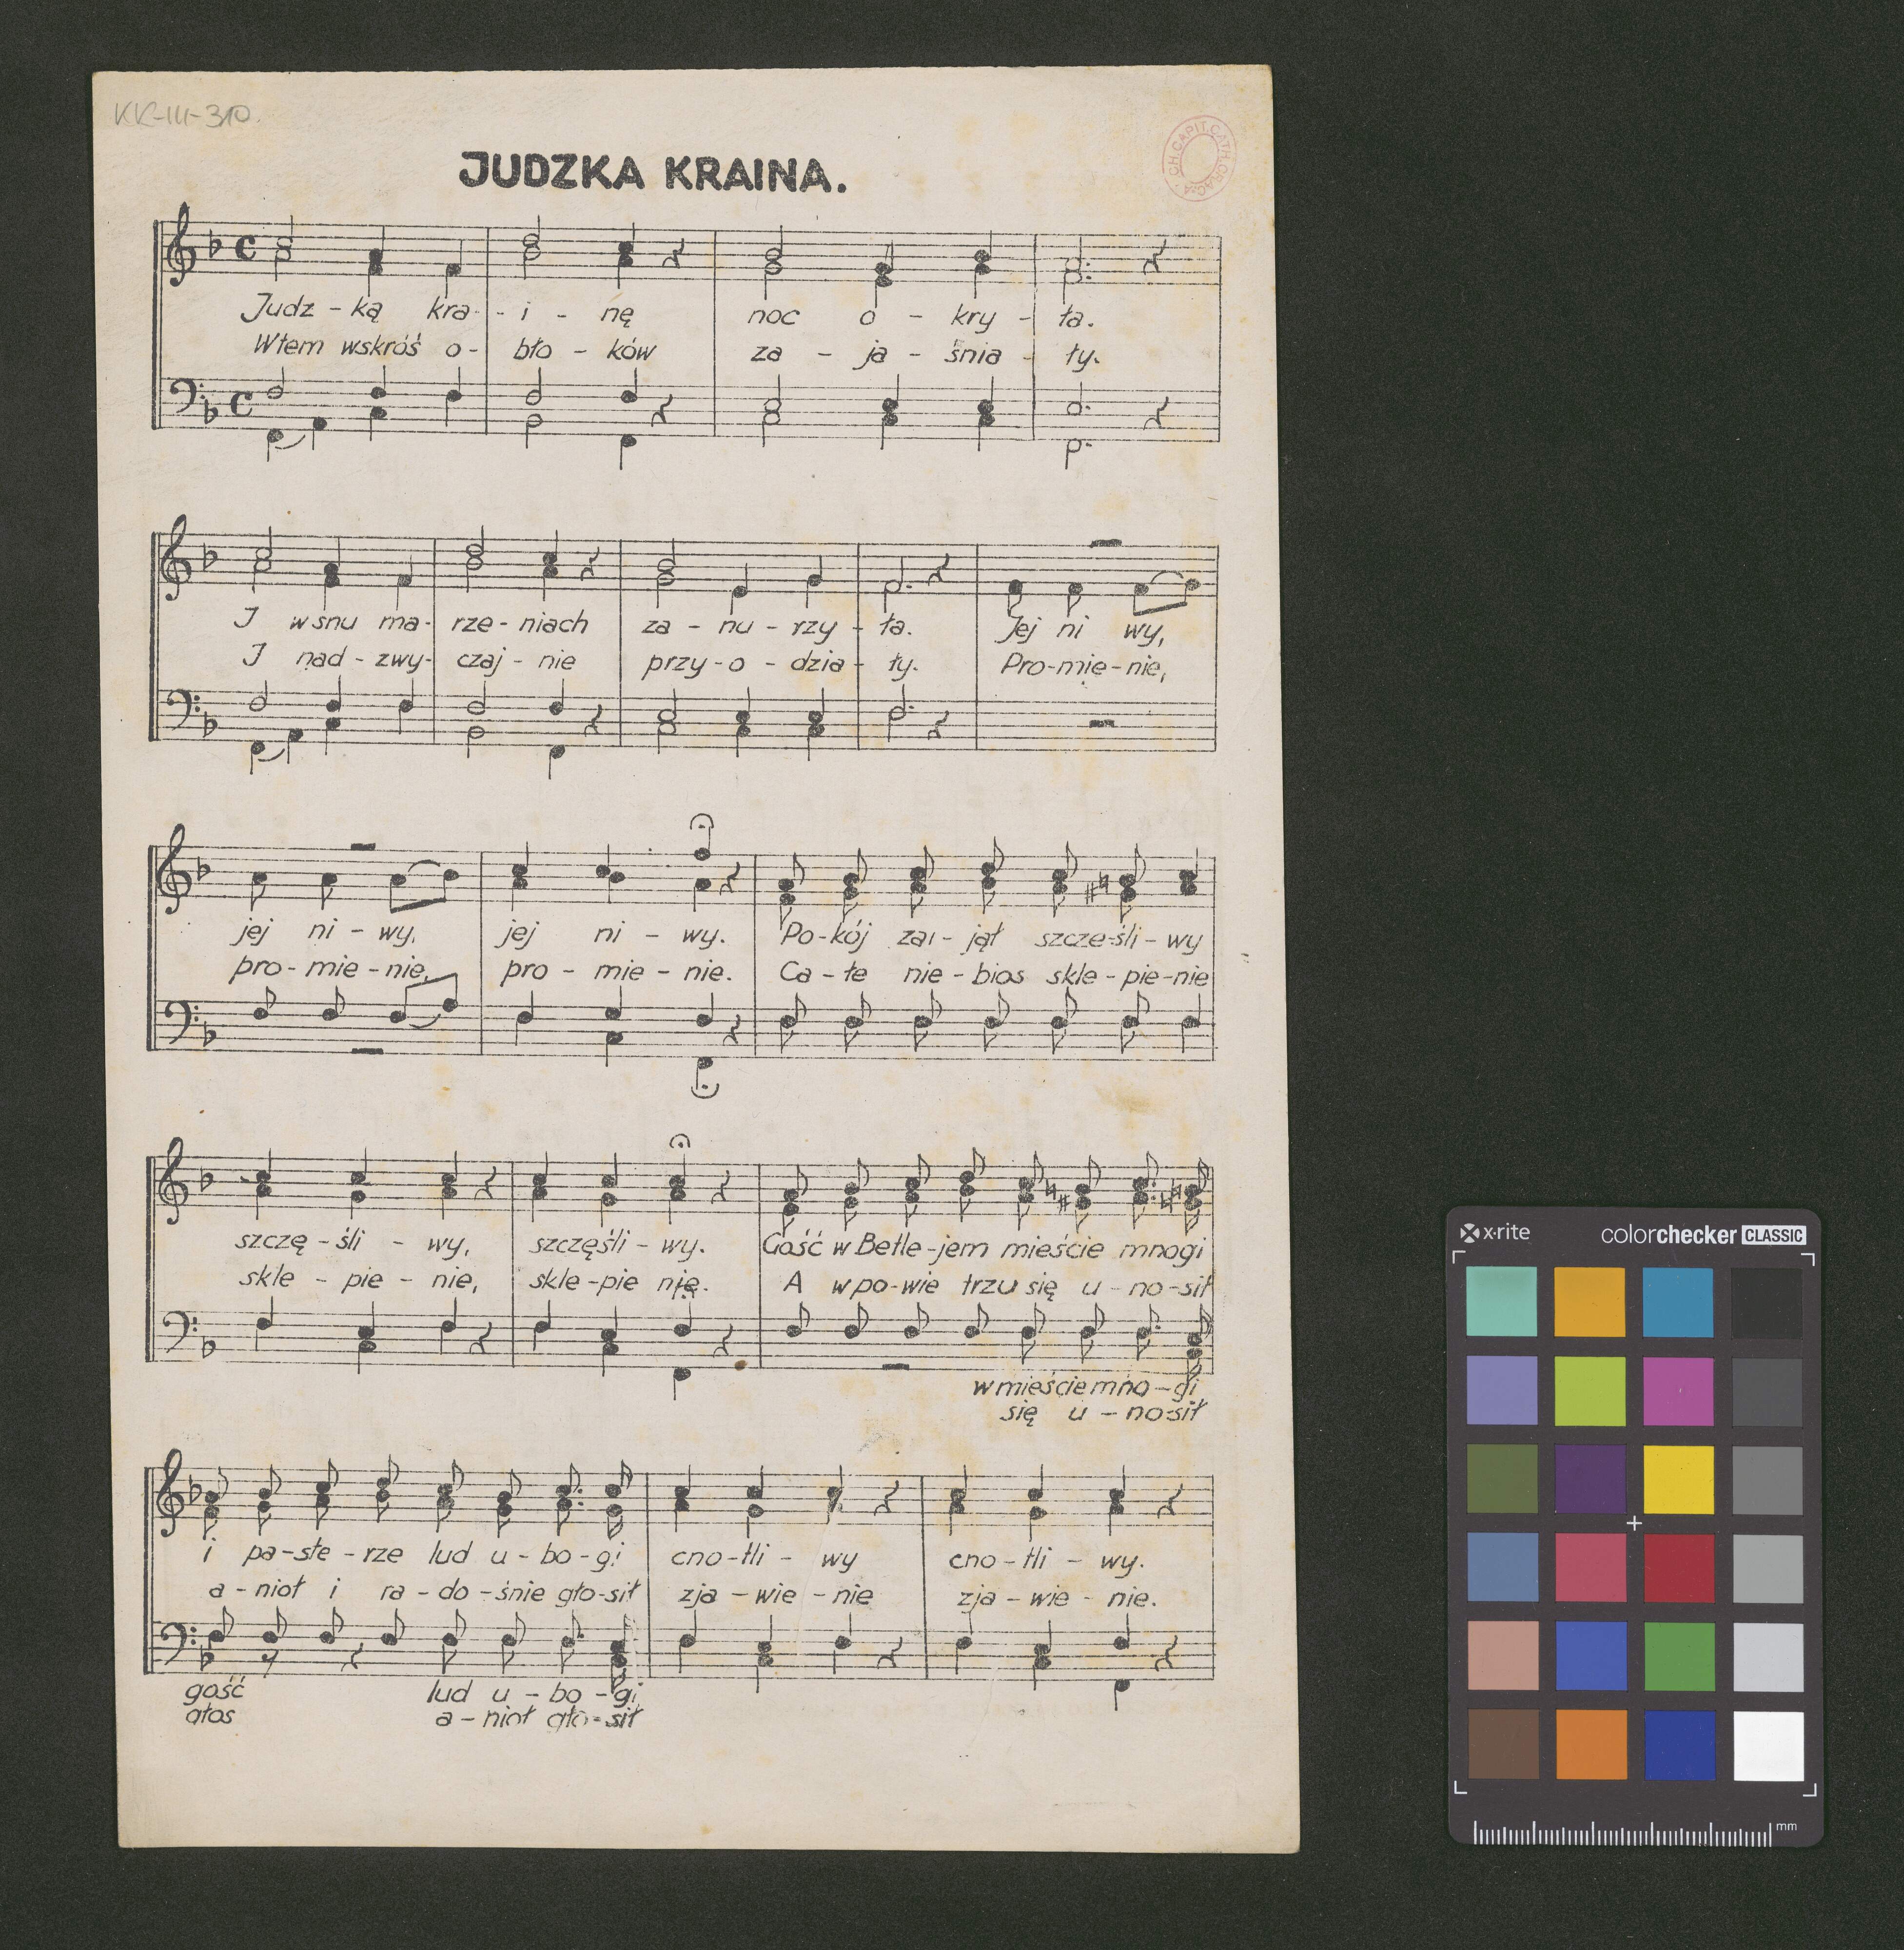 KK-III-310.
CH.CAPIT.CATH.GRAC
JUDZKA KRAINA.
Judz - ką kra - i - nę noc o - kry - ła.
Wtem wskróś o - bło - ków za - ja - śnia - ły.
J w snu ma - rze - niach za - nu - rzy - ła. Jej ni wy,
J nad - zwy - czaj - nie przy - o - dzia - ły. Pro - mie - nie,
jej ni - wy, jej ni - wy. Po - kój za - jął szcze - śli - wy
pro - mie - nie, pro - mie - nie. Ca - łe nie - bios skle - pie - nie
szczę - śli - wy, szczęśli - wy. Gość w Betle - jem mieście mnogi
skle - pie - nie, skle - pie nie. A w po - wie trzu się u - no - sił
w mieście mno - gi
się u - no - sił
i pa - ste - rze lud u - bo - gi cno - tli - wy cno - tli - wy.
a - nioł i ra - do - śnie gło - sił zja - wie - nie zja - wie - nie.
gość lud u - bo - gi
głos a - nioł gło - sił
x·rite colorchecker CLASSIC
mm